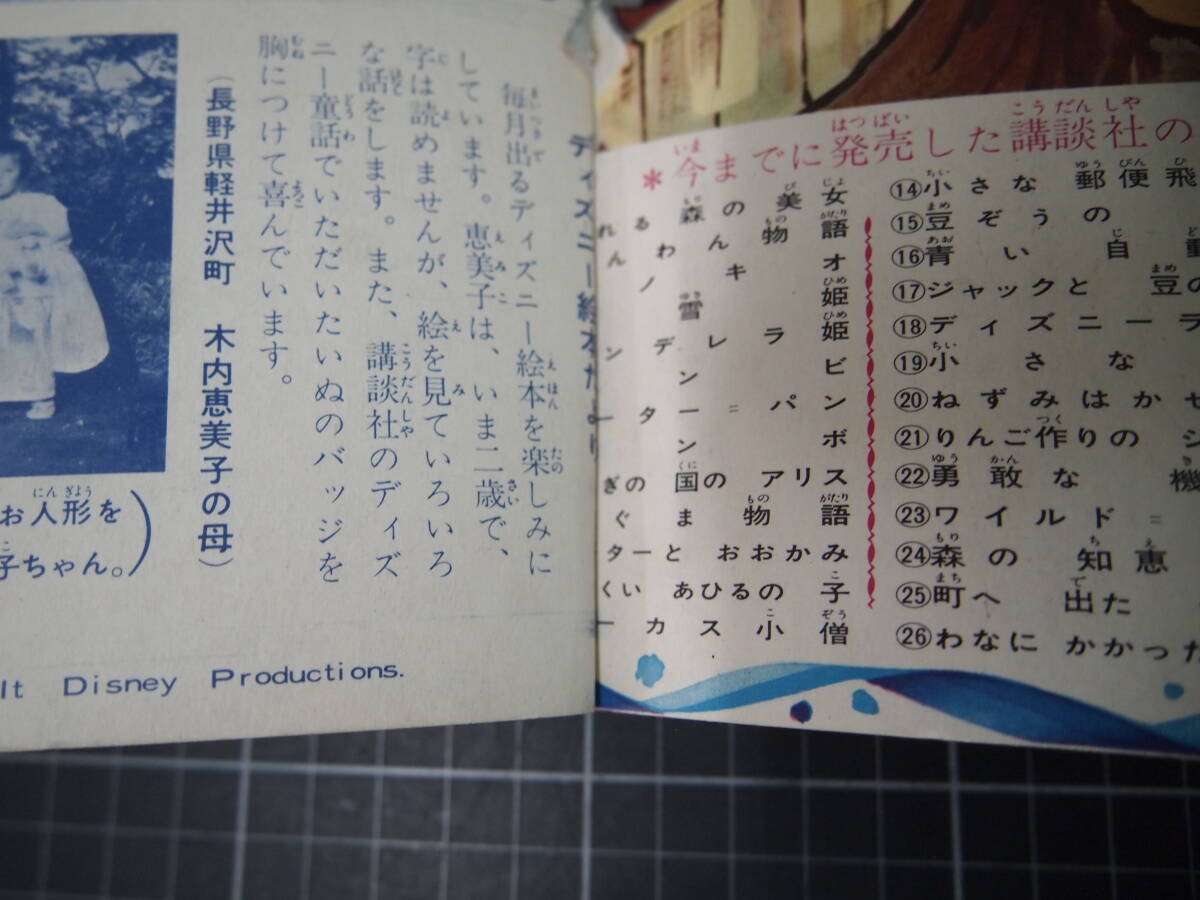 ディズニー絵本だより
毎月出るディズニー絵本を楽しみに
しています。恵美子は、いま二歳で、
字は読めませんが、絵を見ていろいろ
な話をします。また、講談社のディズ
ニー童話でいただいたいぬのバッジを
胸につけて喜んでいます。
(長野県軽井沢町 木内恵美子の母)
お人形を
子ちゃん。)
lt Disney Productions.
*今までに発売した講談社の
れる森の美女
んわん物語
ノキオ
雪姫
ンデレラ姫
ンビ
ーター=パン
ンボ
ぎの国のアリス
ぐま物語
ターと おおかみ
くい あひるの子
ーカス小僧
⑭小さな 郵便飛
⑮豆ぞうの
⑯青い 自動
⑰ジャックと 豆の
⑱ディズニーラ
⑲小さな
⑳ねずみはかせ
㉑りんご作りのジ
㉒勇敢な 機
㉓ワイルド=
㉔森の 知恵
㉕町へ 出た
㉖わなに かかった